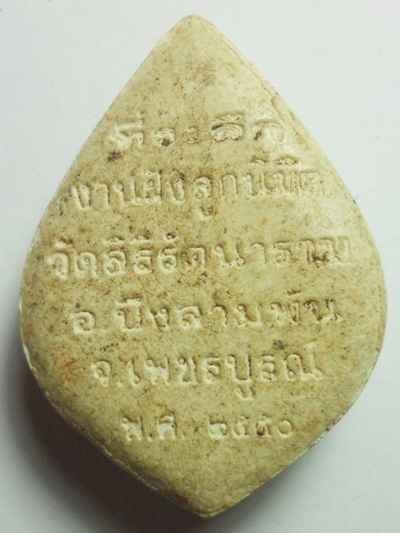 ที่ระลึก
งานฝังลูกนิมิต
วัดสิริรัตนาราม
อ.บึงสามพัน
จ.เพชรบูรณ์
พ.ศ. ๒๕๕๐